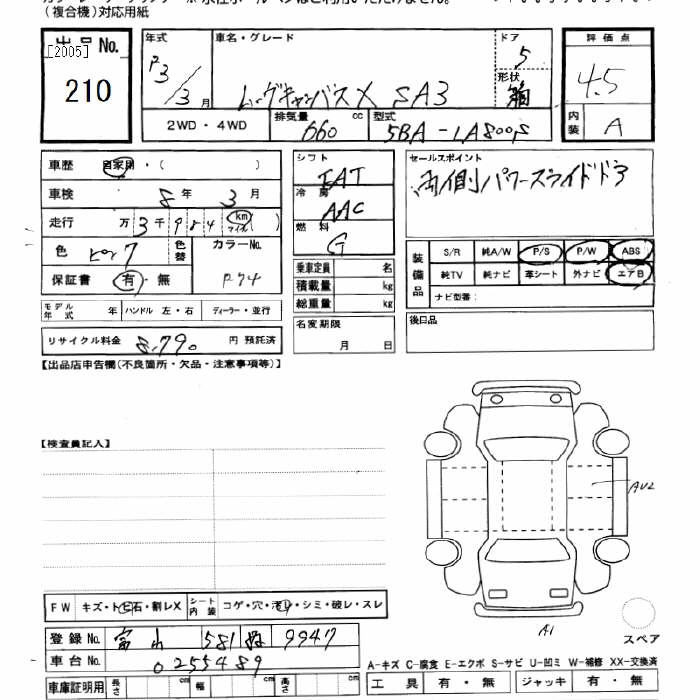 (複合機)対応用紙
出品No.
[2005]
210
年式
R3/3月
車名・グレード
ムーヴキャンバスX SA3
ドア
5
形状
箱
評価点
4.5
内装
A
2WD・4WD
排気量
660 cc
型式
5BA-LA800S
車歴 自家用・( )
車検 8年 3月
走行 万3千984 km マイル ( )
色 ピンク 色替
カラーNo.
保証書 有・無
シフト
IAT
冷房
AAC
燃料
G
乗車定員 名
積載量 kg
総重量 kg
セールスポイント
両側パワースライドドア
装備品
S/R 純A/W P/S P/W ABS
純TV 純ナビ 革シート 外ナビ エアB
ナビ型番:
モデル年式 年 ハンドル 左・右 ディーラー・並行
リサイクル料金 8,790 円 預託済
名変期限
月 日
後日品
【出品店申告欄(不良箇所・欠品・注意事項等)】
【検査員記入】
AU2
A1
FW キズ・トビ石・割レX シート内装 コゲ・穴・汚レ・シミ・破レ・スレ
登録No. 富山 581 9947
車台No. 0255489
車庫証明用 長さ cm 幅 cm 高さ cm
スペア
A-キズ C-腐食 E-エクボ S-サビ U-凹ミ W-補修 XX-交換済
工具 有・無 ジャッキ 有・無